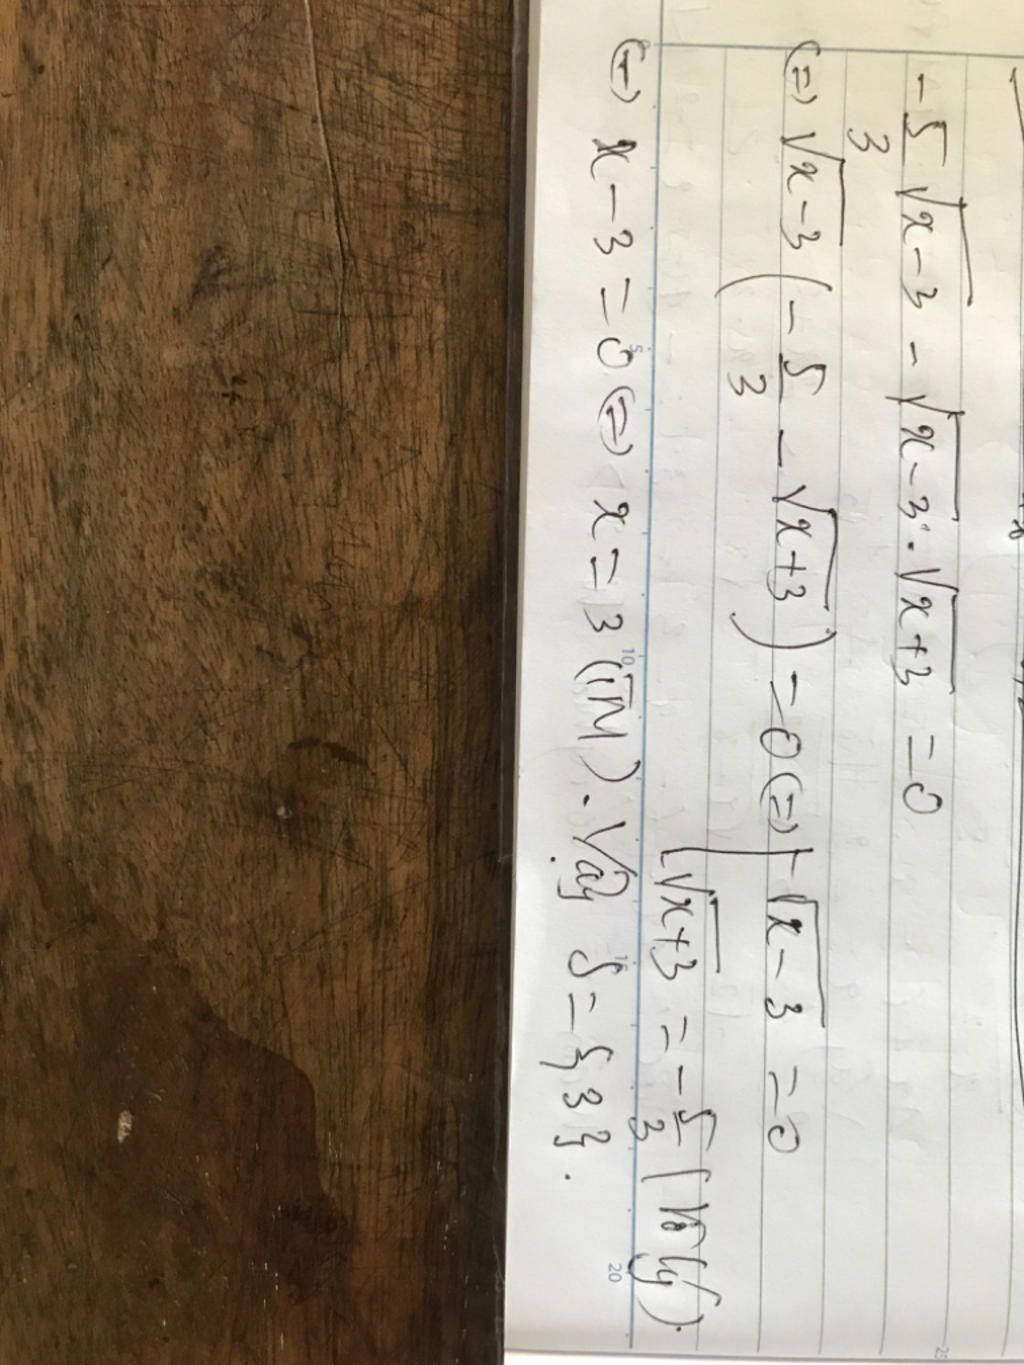 - 5/3 √(x-3) - √(x-3) . √(x+3) = 0
(=) √(x-3) (- 5/3 - √(x+3)) = 0 (=) [ √(x-3) = 0
√(x+3) = - 5/3 (Vô lý).
(=) x - 3 = 0 (=) x = 3 (TM). Vậy S = {3}.
5
10
15
20
25